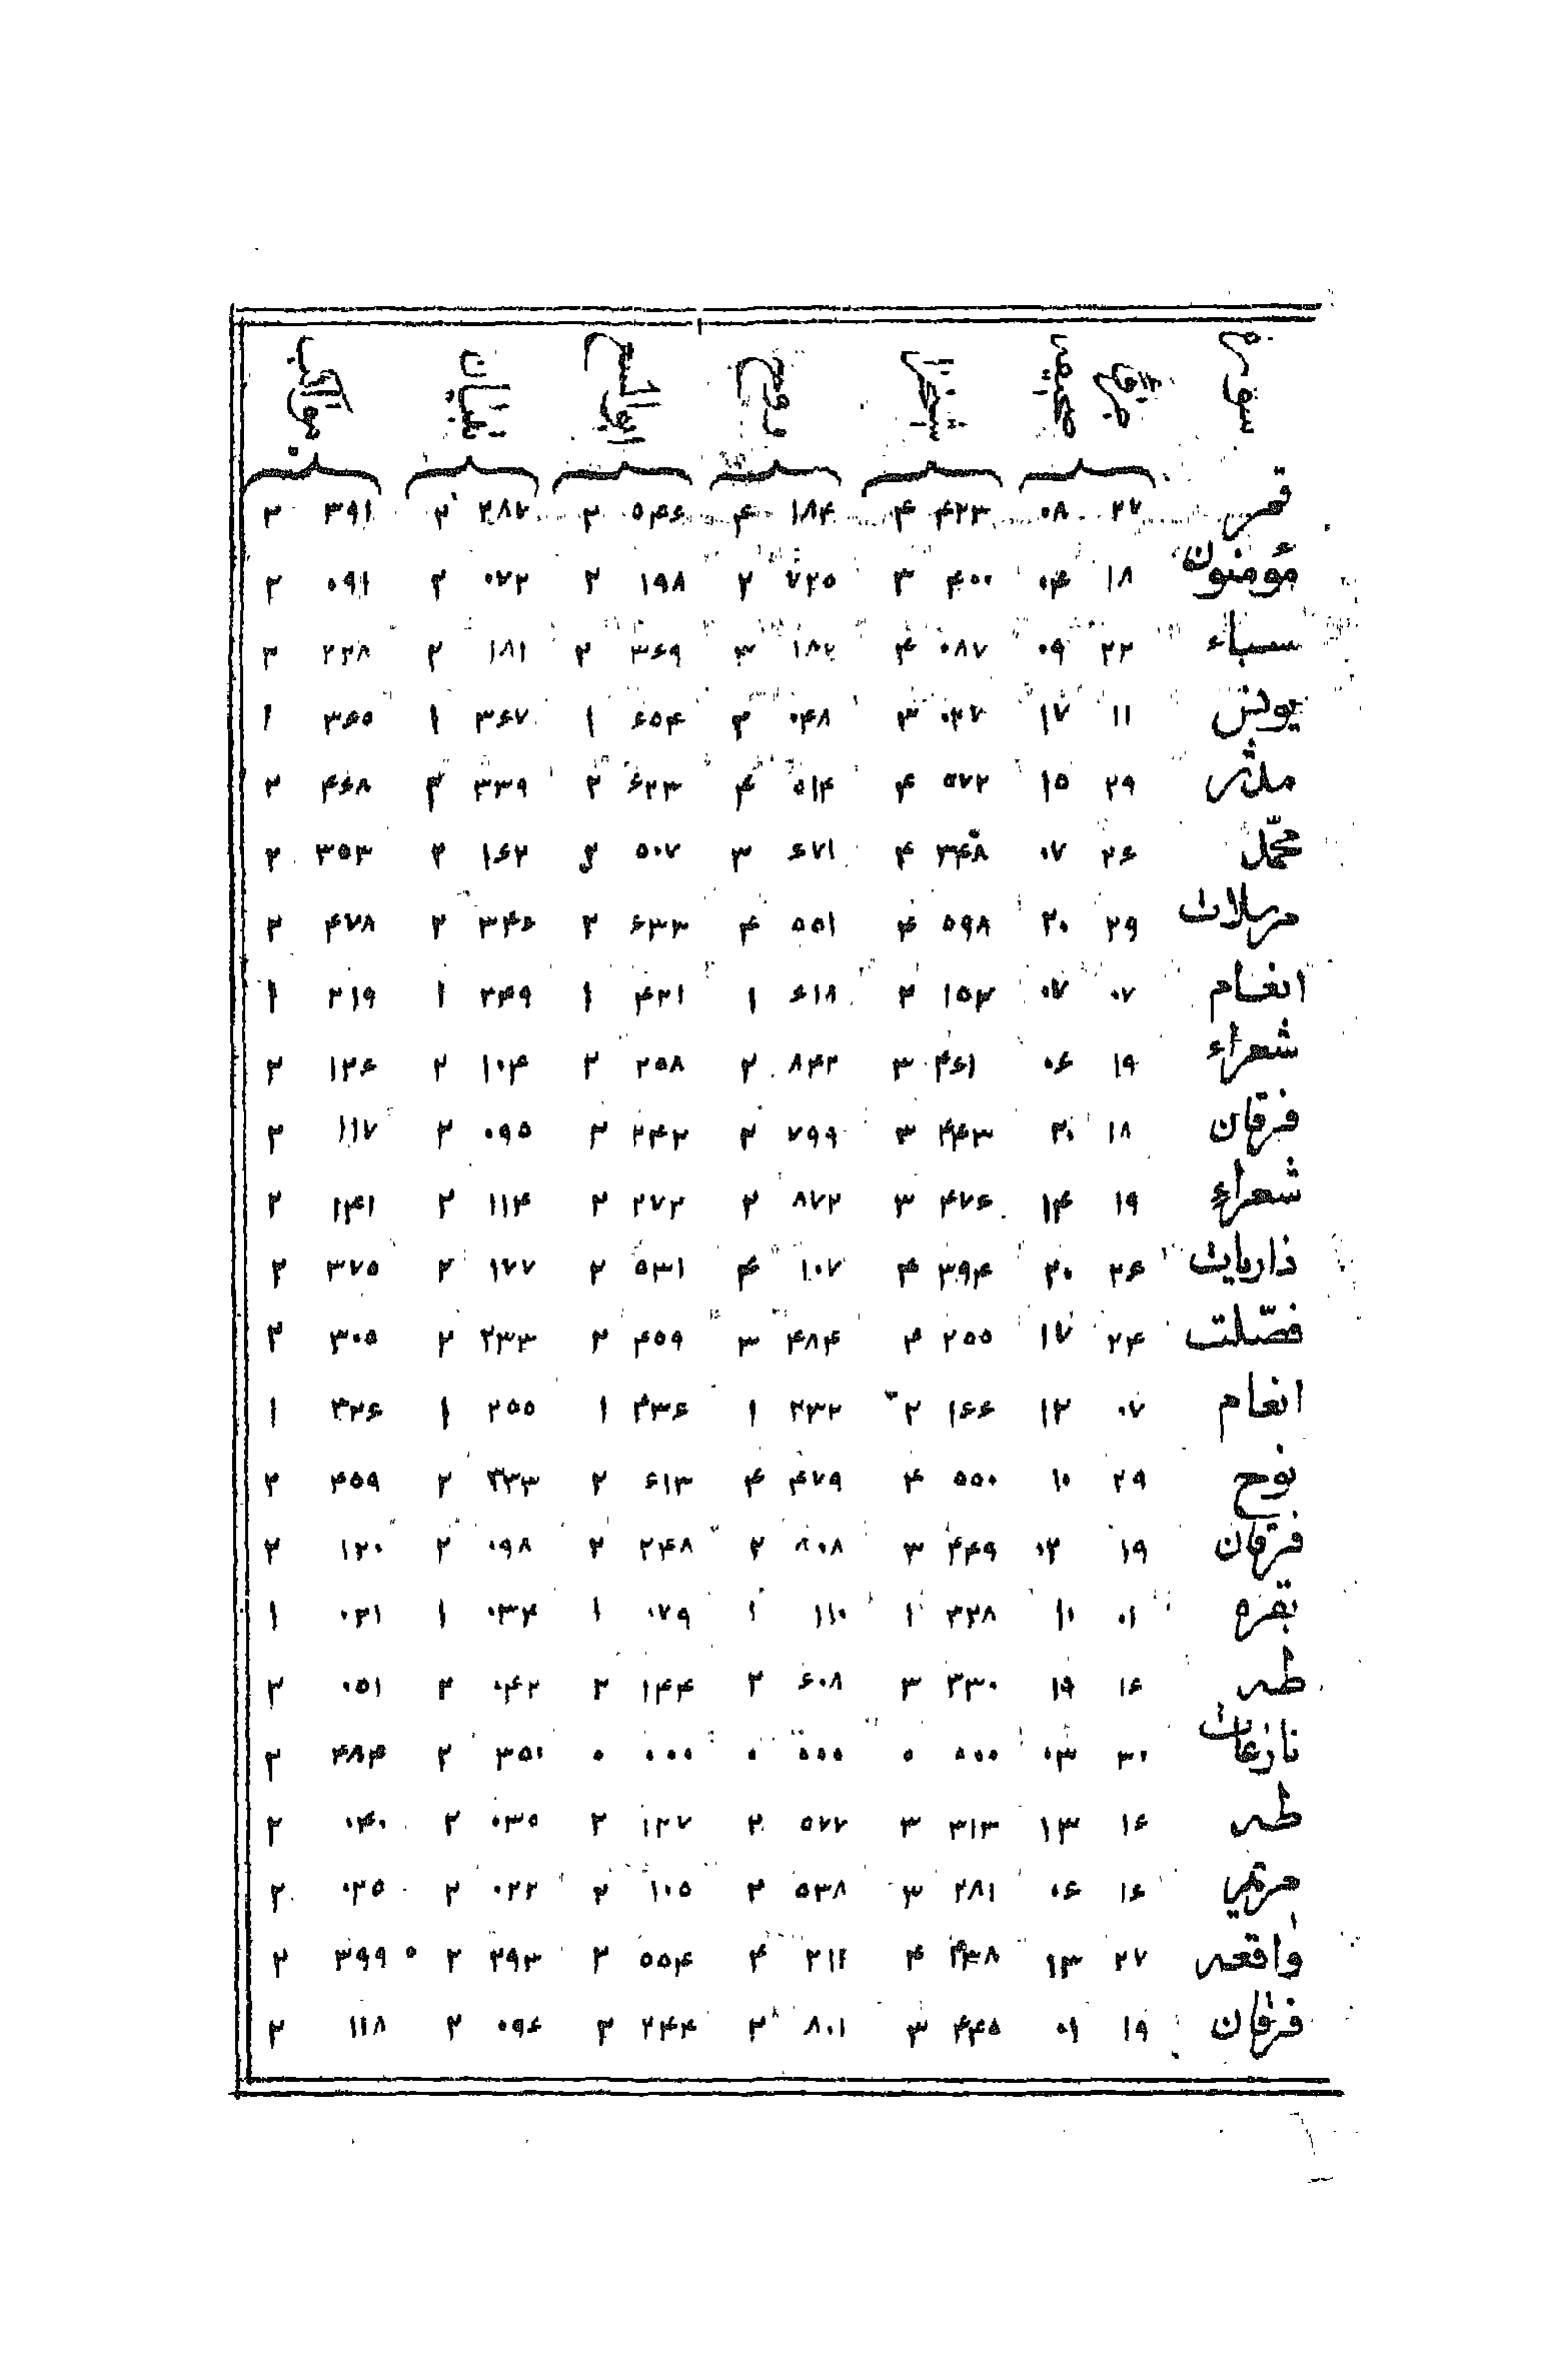 قمر ۲۷ ۰۸ ۴۲۳ ۴ ۱۸۴ ۴ ۵۴۶ ۲ ۲۸۷ ۲ ۳۹۱ ۲
مؤمنون ۱۸ ۰۴ ۴۰۰ ۳ ۷۲۵ ۲ ۱۹۸ ۲ ۰۷۲ ۲ ۰۹۱ ۲
سباء ۲۲ ۰۹ ۰۸۷ ۴ ۱۸۷ ۳ ۳۶۹ ۲ ۱۸۱ ۲ ۲۲۸ ۲
یونس ۱۱ ۱۷ ۰۲۷ ۳ ۰۴۸ ۲ ۶۵۴ ۱ ۳۶۷ ۱ ۳۶۵ ۱
مدثر ۲۹ ۱۵ ۵۷۲ ۴ ۵۱۴ ۴ ۶۲۳ ۲ ۳۳۹ ۲ ۴۶۸ ۲
محمّد ۲۶ ۰۷ ۳۴۸ ۴ ۶۷۱ ۳ ۵۰۷ ۲ ۱۶۲ ۲ ۳۵۳ ۲
مرسلات ۲۹ ۲۰ ۵۹۸ ۴ ۵۵۱ ۴ ۶۳۳ ۲ ۳۴۶ ۲ ۴۷۸ ۲
انعام ۰۷ ۰۷ ۱۵۲ ۲ ۶۱۸ ۱ ۴۲۱ ۱ ۲۴۹ ۱ ۲۱۹ ۱
شعراء ۱۹ ۰۶ ۴۶۱ ۳ ۸۴۲ ۲ ۲۵۸ ۲ ۱۰۴ ۲ ۱۲۶ ۲
فرقان ۱۸ ۲۰ ۴۴۳ ۳ ۷۹۹ ۲ ۲۴۲ ۲ ۰۹۵ ۲ ۱۱۷ ۲
شعراء ۱۹ ۱۴ ۴۷۶ ۳ ۸۷۲ ۲ ۲۷۲ ۲ ۱۱۴ ۲ ۱۴۱ ۲
ذاریات ۲۶ ۲۰ ۳۹۴ ۴ ۱۰۷ ۴ ۵۳۱ ۲ ۱۷۷ ۲ ۳۷۵ ۲
فصّلت ۲۴ ۱۷ ۲۵۵ ۴ ۴۸۴ ۳ ۴۵۹ ۲ ۲۳۳ ۲ ۳۰۵ ۲
انعام ۰۷ ۱۲ ۱۶۶ ۲ ۲۳۲ ۱ ۴۳۶ ۱ ۲۵۵ ۱ ۲۲۶ ۱
نوح ۲۹ ۱۰ ۵۵۰ ۴ ۴۷۹ ۴ ۶۱۳ ۲ ۳۳۳ ۲ ۴۵۹ ۲
فرقان ۱۹ ۰۲ ۴۴۹ ۳ ۸۰۸ ۲ ۲۴۸ ۲ ۰۹۸ ۲ ۱۲۰ ۲
بقره ۰۱ ۱۰ ۳۲۸ ۱ ۱۱۰ ۱ ۰۷۹ ۱ ۰۳۴ ۱ ۰۲۱ ۱
طه ۱۶ ۱۹ ۳۳۰ ۳ ۶۰۸ ۲ ۱۴۴ ۲ ۰۴۲ ۲ ۰۵۱ ۲
نازعات ۳۰ ۰۳ ۰۰۰ ۰ ۰۰۰ ۰ ۰۰۰ ۰ ۳۵۰ ۲ ۴۸۴ ۲
طه ۱۶ ۱۳ ۳۱۳ ۳ ۵۷۷ ۲ ۱۲۷ ۲ ۰۳۵ ۲ ۰۴۰ ۲
مریم ۱۶ ۰۶ ۲۸۱ ۳ ۵۳۸ ۲ ۱۰۵ ۲ ۰۲۲ ۲ ۰۲۵ ۲
واقعه ۲۷ ۱۳ ۴۳۸ ۴ ۲۱۲ ۴ ۵۵۴ ۲ ۲۹۳ ۲ ۳۹۹ ۲
فرقان ۱۹ ۰۱ ۴۴۵ ۳ ۸۰۱ ۲ ۲۴۴ ۲ ۰۹۶ ۲ ۱۱۸ ۲